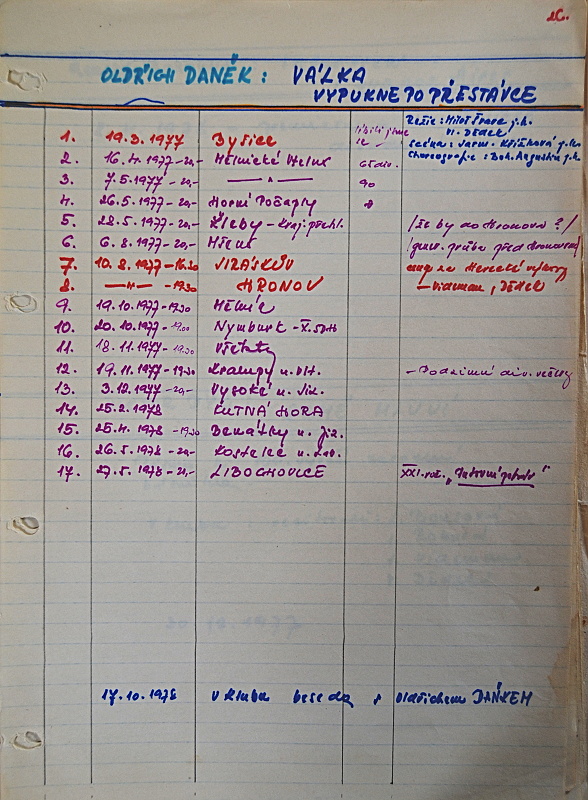 26.
OLDŘICH DANĚK: VÁLKA
VYPUKNE PO PŘESTÁVCE
Režie: Miloš j.h.
Vl. Dědek
Scéna: Jarm. Křížková j.h.
Choreografie: Boh. Augustin j.h.
1. 19.3.1977 Byšice
2. 16.4.1977 - 20,-
3. 7.5.1977 - 20,- —"— 90
4. 26.5.1977 - 20,- Horní Počaply
5. 28.5.1977 - 20,- Kleby - Kraj. přehl. /Že by do Hronova?/
6. 6.8.1977 - 20,- /gener. před Hronovem/
7. 10.8.1977 - 16.30 JIRÁSKŮV za Herecké výkony
8. —"— - 19.30 HRONOV , Dědek
9. 19.10.1977 - 19.30 Mělník
10. 20.10.1977 - 19.00 Nymburk -
11. 18.11.1977 - 19.30 Všetaty
12. 19.11.1977 - 19.30 Kralupy n. Vlt. - Podzimní div. večery
13. 3.12.1977 - 20,- Vysoké n. Jiz.
14. 25.2.1978 KUTNÁ HORA
15. 25.4.1978 - 19.30 Benátky n. Jiz.
16. 26.5.1978 - 20,- Kostelec n. Lab.
17. 27.5.1978 - 20,- LIBOCHOVICE XXI. roč.
17.10.1978 V klubu beseda s Oldřichem DAŇKEM